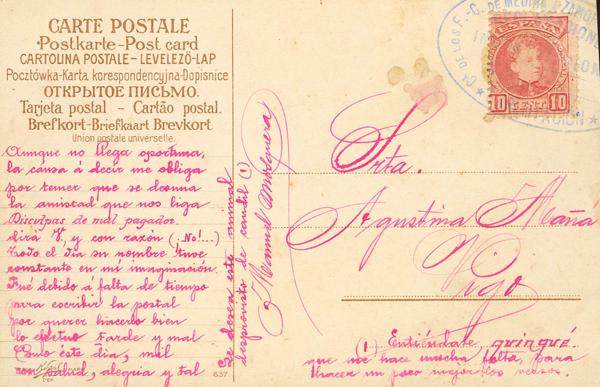 CARTE POSTALE
Postkarte-Post card
CARTOLINA POSTALE-LEVELEZŐ-LAP
Pocztówka-Karta korespondencyjna-Dopisnice
ОТКРЫТОЕ ПИСЬМО.
Tarjeta postal - Cartão postal.
Brefkort-Briefkaart Brevkort
Union postale universelle.
Aunque no llega oportuna,
la causa á decir me obliga
por temer que se desuna
la amistad que nos liga
Disculpas de mal pagador.
dirá V. y con razón (¡No!...)
todo el día su nombre tuve
constante en mi imaginación.
Fué debido á falta de tiempo
para escribir la postal
por querer hacerlo bien
lo efectuo tarde y mal
Como este día, mil
con salud, alegria y tal
637
Se desea este animal
desprovisto de candil (1)
Manuel
ESPAÑA
10 CENT. 10
Cª DE LOS F.-C. DE MEDINA Á ZAMORA
Srta.
Agustina Mañá
Vigo
(1) Entiéndate quinqué.
que me hace mucha falta, para
thacer un poco mejor los versos.